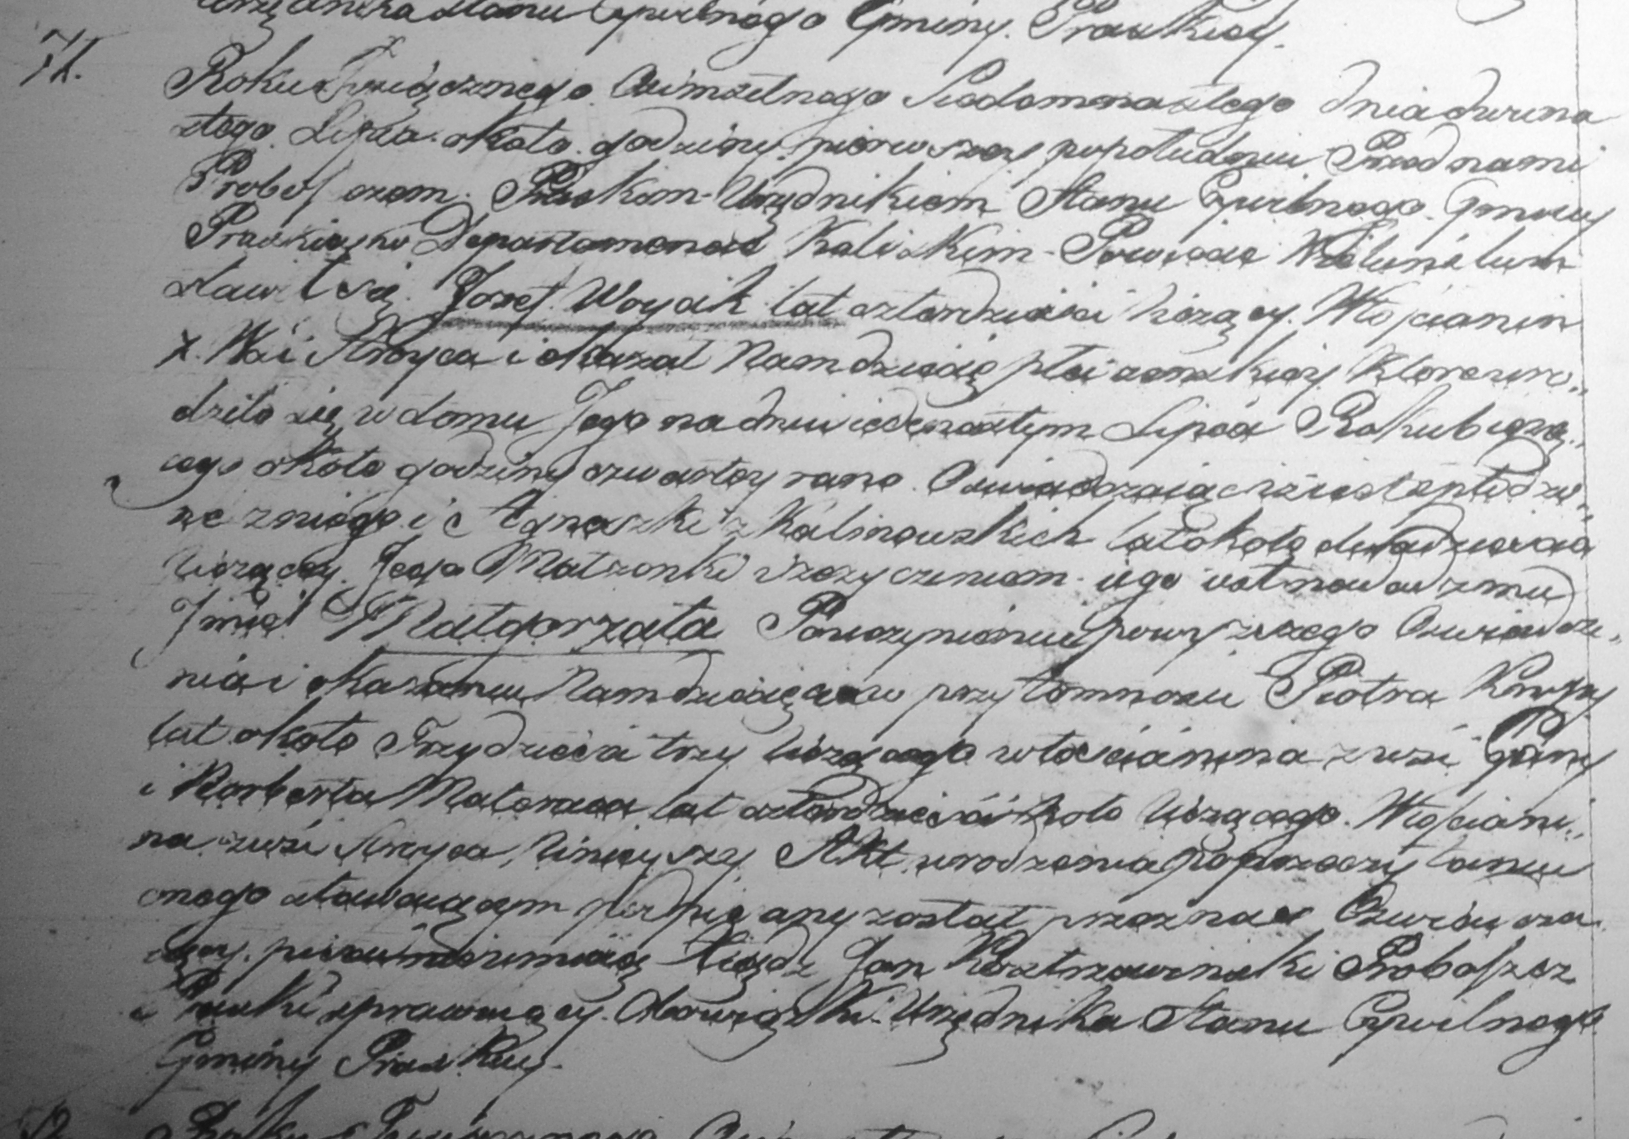 Urzędnika Stanu Cywilnego Gminy Praszkiey.
71.
Roku Tysiącznego Osimsetnego Siedemnastego dnia dwuna
stego Lipca około godziny pierwszey popołudniu Przed nami
Proboszczem Praszkim Urzędnikiem Stanu Cywilnego Gminy
Praszkieyko Departamencie Kaliskim Powiecie Wieluńskim
stawił się Jozef Woycik lat czterdzieści liczący Włościanin
x Wsi Stroyca i okazał Nam dziecię płci zenskiey Które uro„
dziło się w domu Jego na dniu iedenastym Lipca Roku bieżą„
cego około godziny czwartey rano Oswiadczaiąc iż iest spłodzo„
ne z niego i Agneszki z Kalinowskich lat około dwadzieścia
liczącey Jego Małżonki i życzeniem iego iest nadadz mu
Jmię Małgorzata Pouczynieniu powyzszego Oswiadcze„
nia i okazaniu Nam dziecięcia w przytomnosci Piotra
lat około Trzydzieści trzy liczącego włościanina z wsi
i Norberta Mateusza lat czterdzieści około liczącego Włościani„
na z wsi Stroyca, Ninieyszy Akt urodzenia po przeczytaniu
onego stawaiącym podpisany został przez nas Oswiadcza
iący pisać nieumieią Xiądz Jan Proboszcz
Praszki sprawuiący Obowiązki Urzędnika Stanu Cywilnego
Gminy Praszkiey.